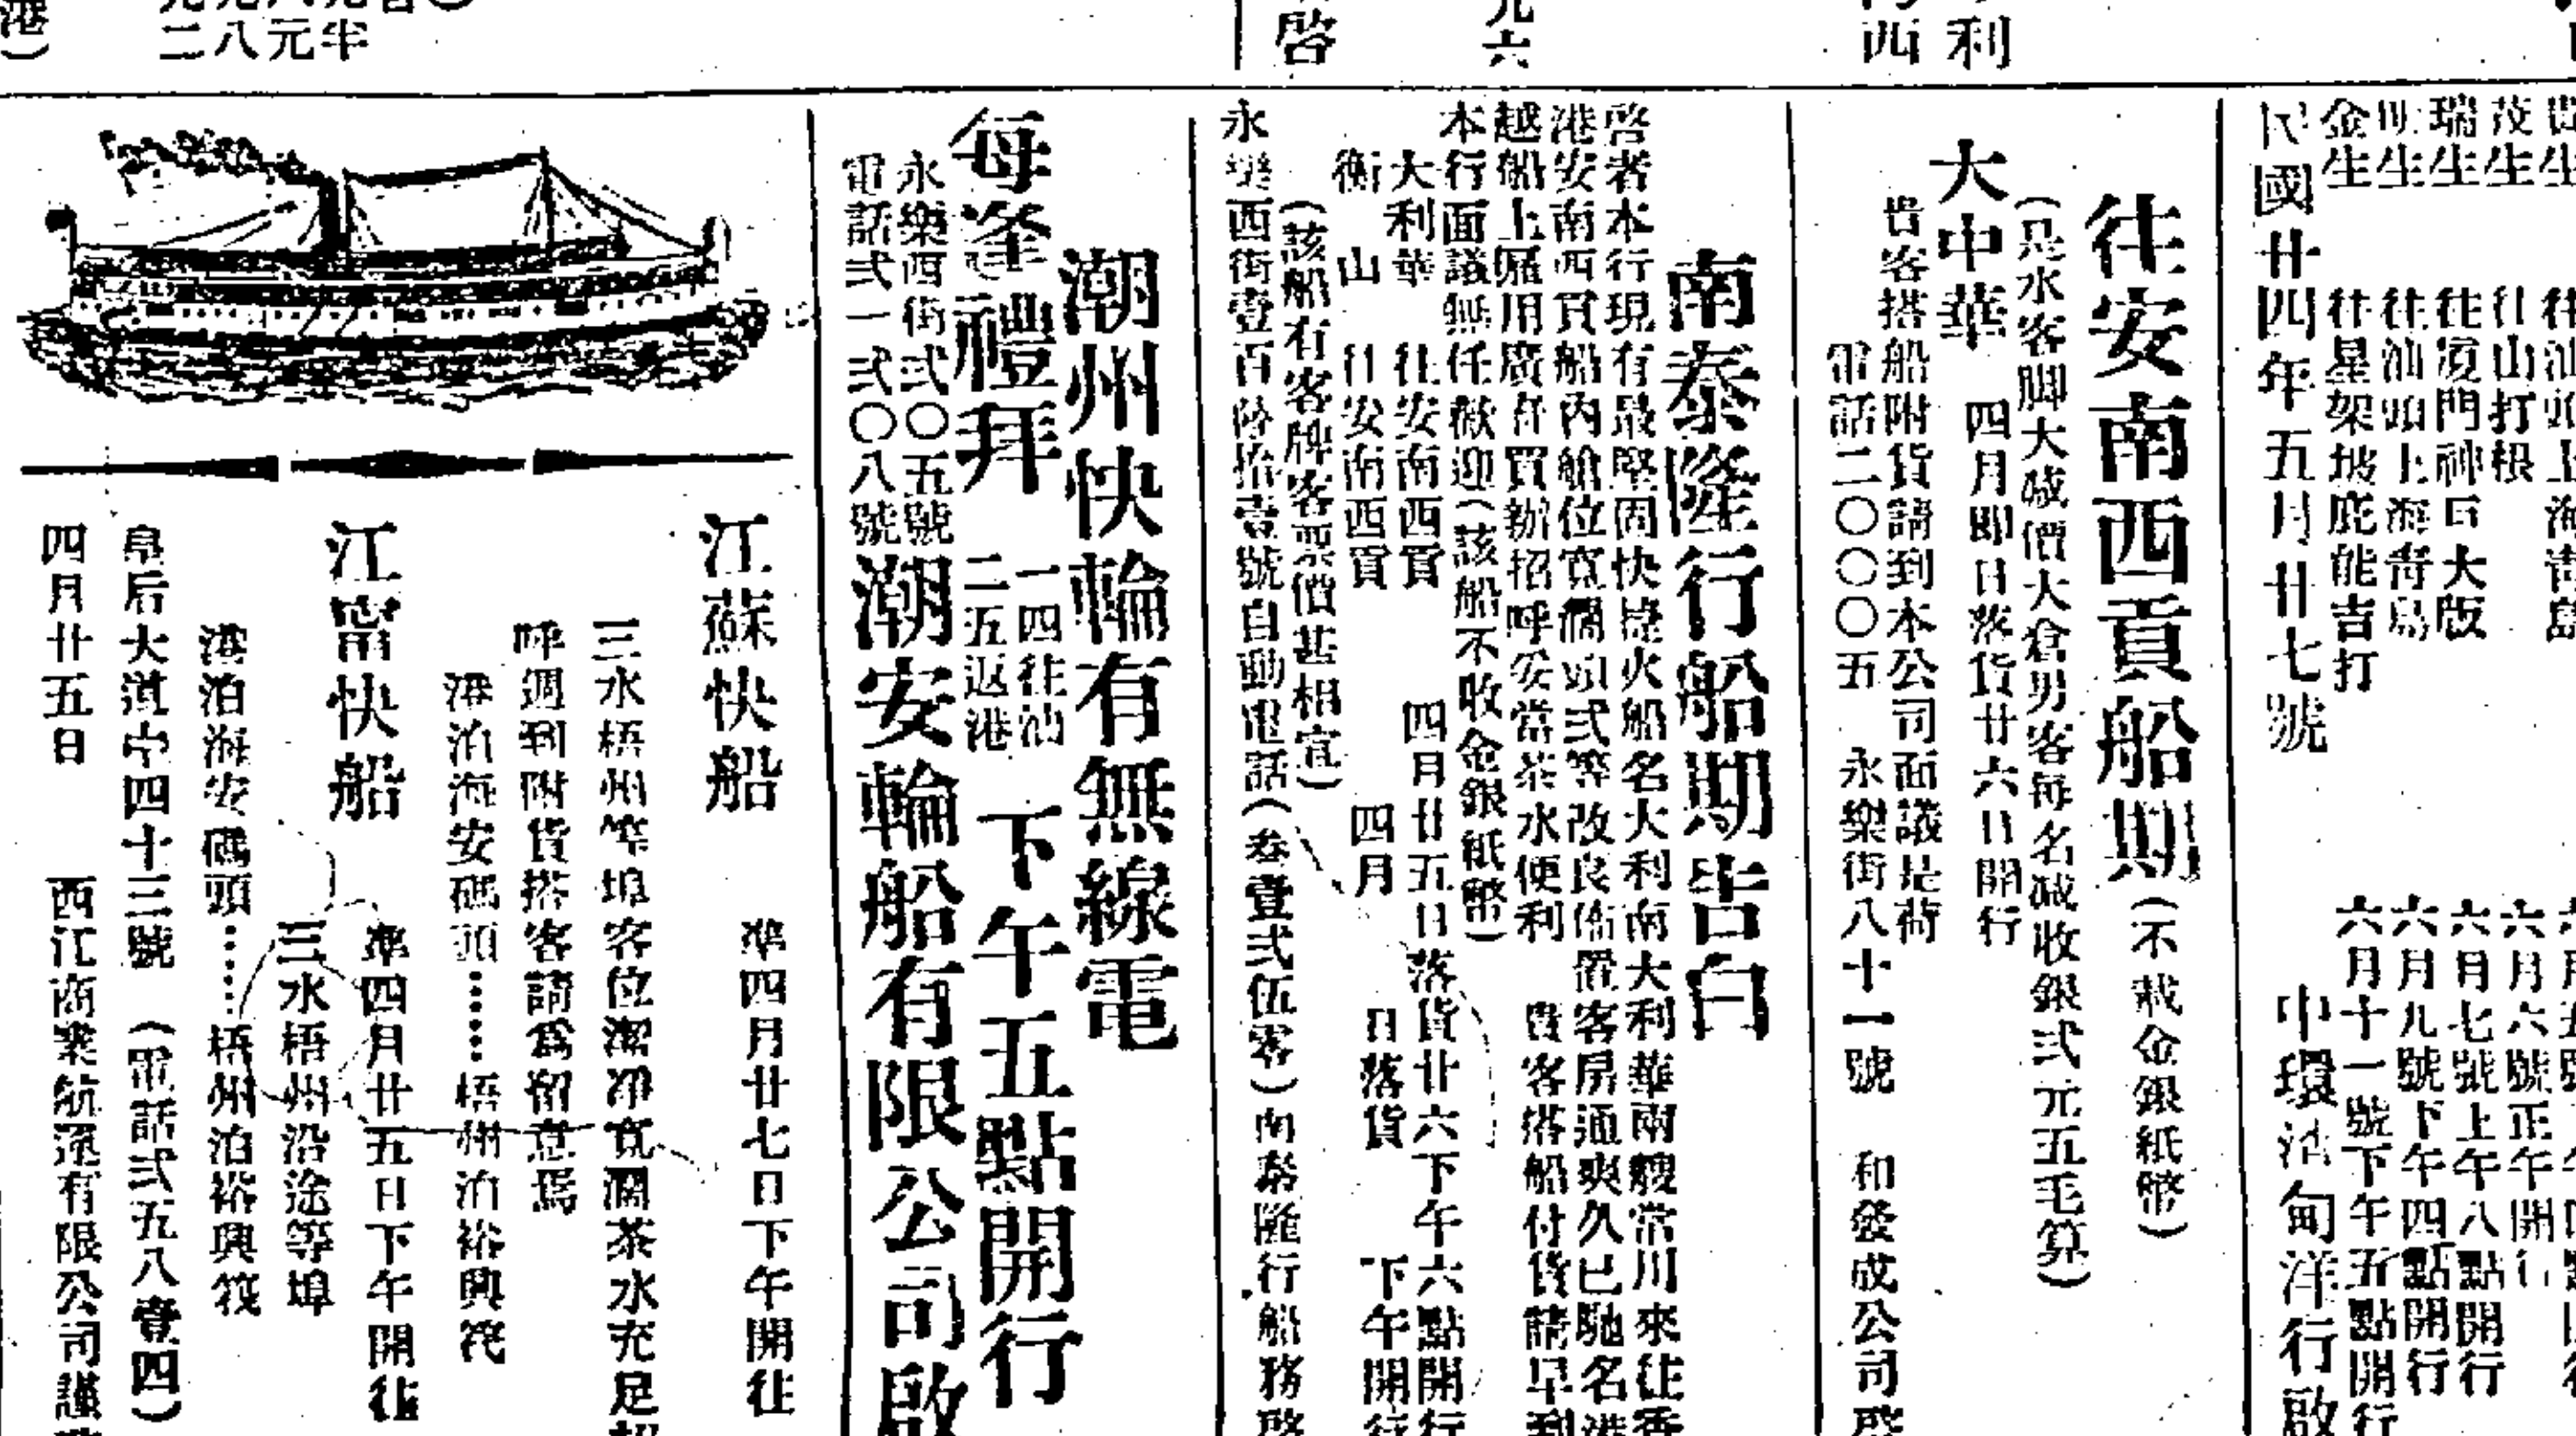 港）
元二
元八
六元
元半
啓
元六
西
利
往汕頭上海青島
茂生 往山打根 六月六號正午開行
瑞生 往廈門神戶大阪 六月七號上午八點開行
明生 往汕頭上海青島 六月九號下午四點開行
金生 往星架坡庇能吉打 六月十一號下午五點開行
民國廿四年五月廿七號 中環渣甸洋行啟
往安南西貢船期（不載金銀紙幣）
（是水客脚大減價大倉男客每名減收銀弍元五毛算）
大中華 四月即日落貨廿六日開行
貴客搭船附貨請到本公司面議是荷
電話二〇〇〇五 永樂街八十一號 和發成公司啓
南泰隆行船期告白
啓者本行現有最堅固快捷火船名大利南大利華南艘常川來往香
港安南西貢船內艙位寬濶頭弍等改良佈置客房通爽久已馳名港
越船上雇用廣府買辦招呼妥當茶水便利 貴客搭船付貨請早到
本行面議無任歡迎（該船不收金銀紙幣）
大利華 往安南西貢 四月廿五日落貨廿六下午六點開行
衡山 往安南西貢 四月 日落貨 下午開行
（該船有客牌客票價甚相宜）
永樂西街壹百陸拾壹號自動電話（叁壹弍伍零）南泰隆行船務啓
潮州快輪有無線電
每逢禮拜
一四往汕
二五返港
下午五點開行
永樂西街弍〇五號
電話弍一弍〇八號
潮安輪船有限公司啟
江蘇快船 準四月廿七日下午開往
三水梧州等埠客位潔淨寬濶茶水充足招
呼週到附貨搭客請爲留意焉
港泊海安碼頭⋯⋯梧州泊裕興筏
江甯快船 準四月廿五日下午開往
三水梧州沿途等埠
港泊海安碼頭⋯⋯梧州泊裕興筏
皇后大道中四十三號 （電話弍五八壹四）
四月廿五日 西江商業航運有限公司謹